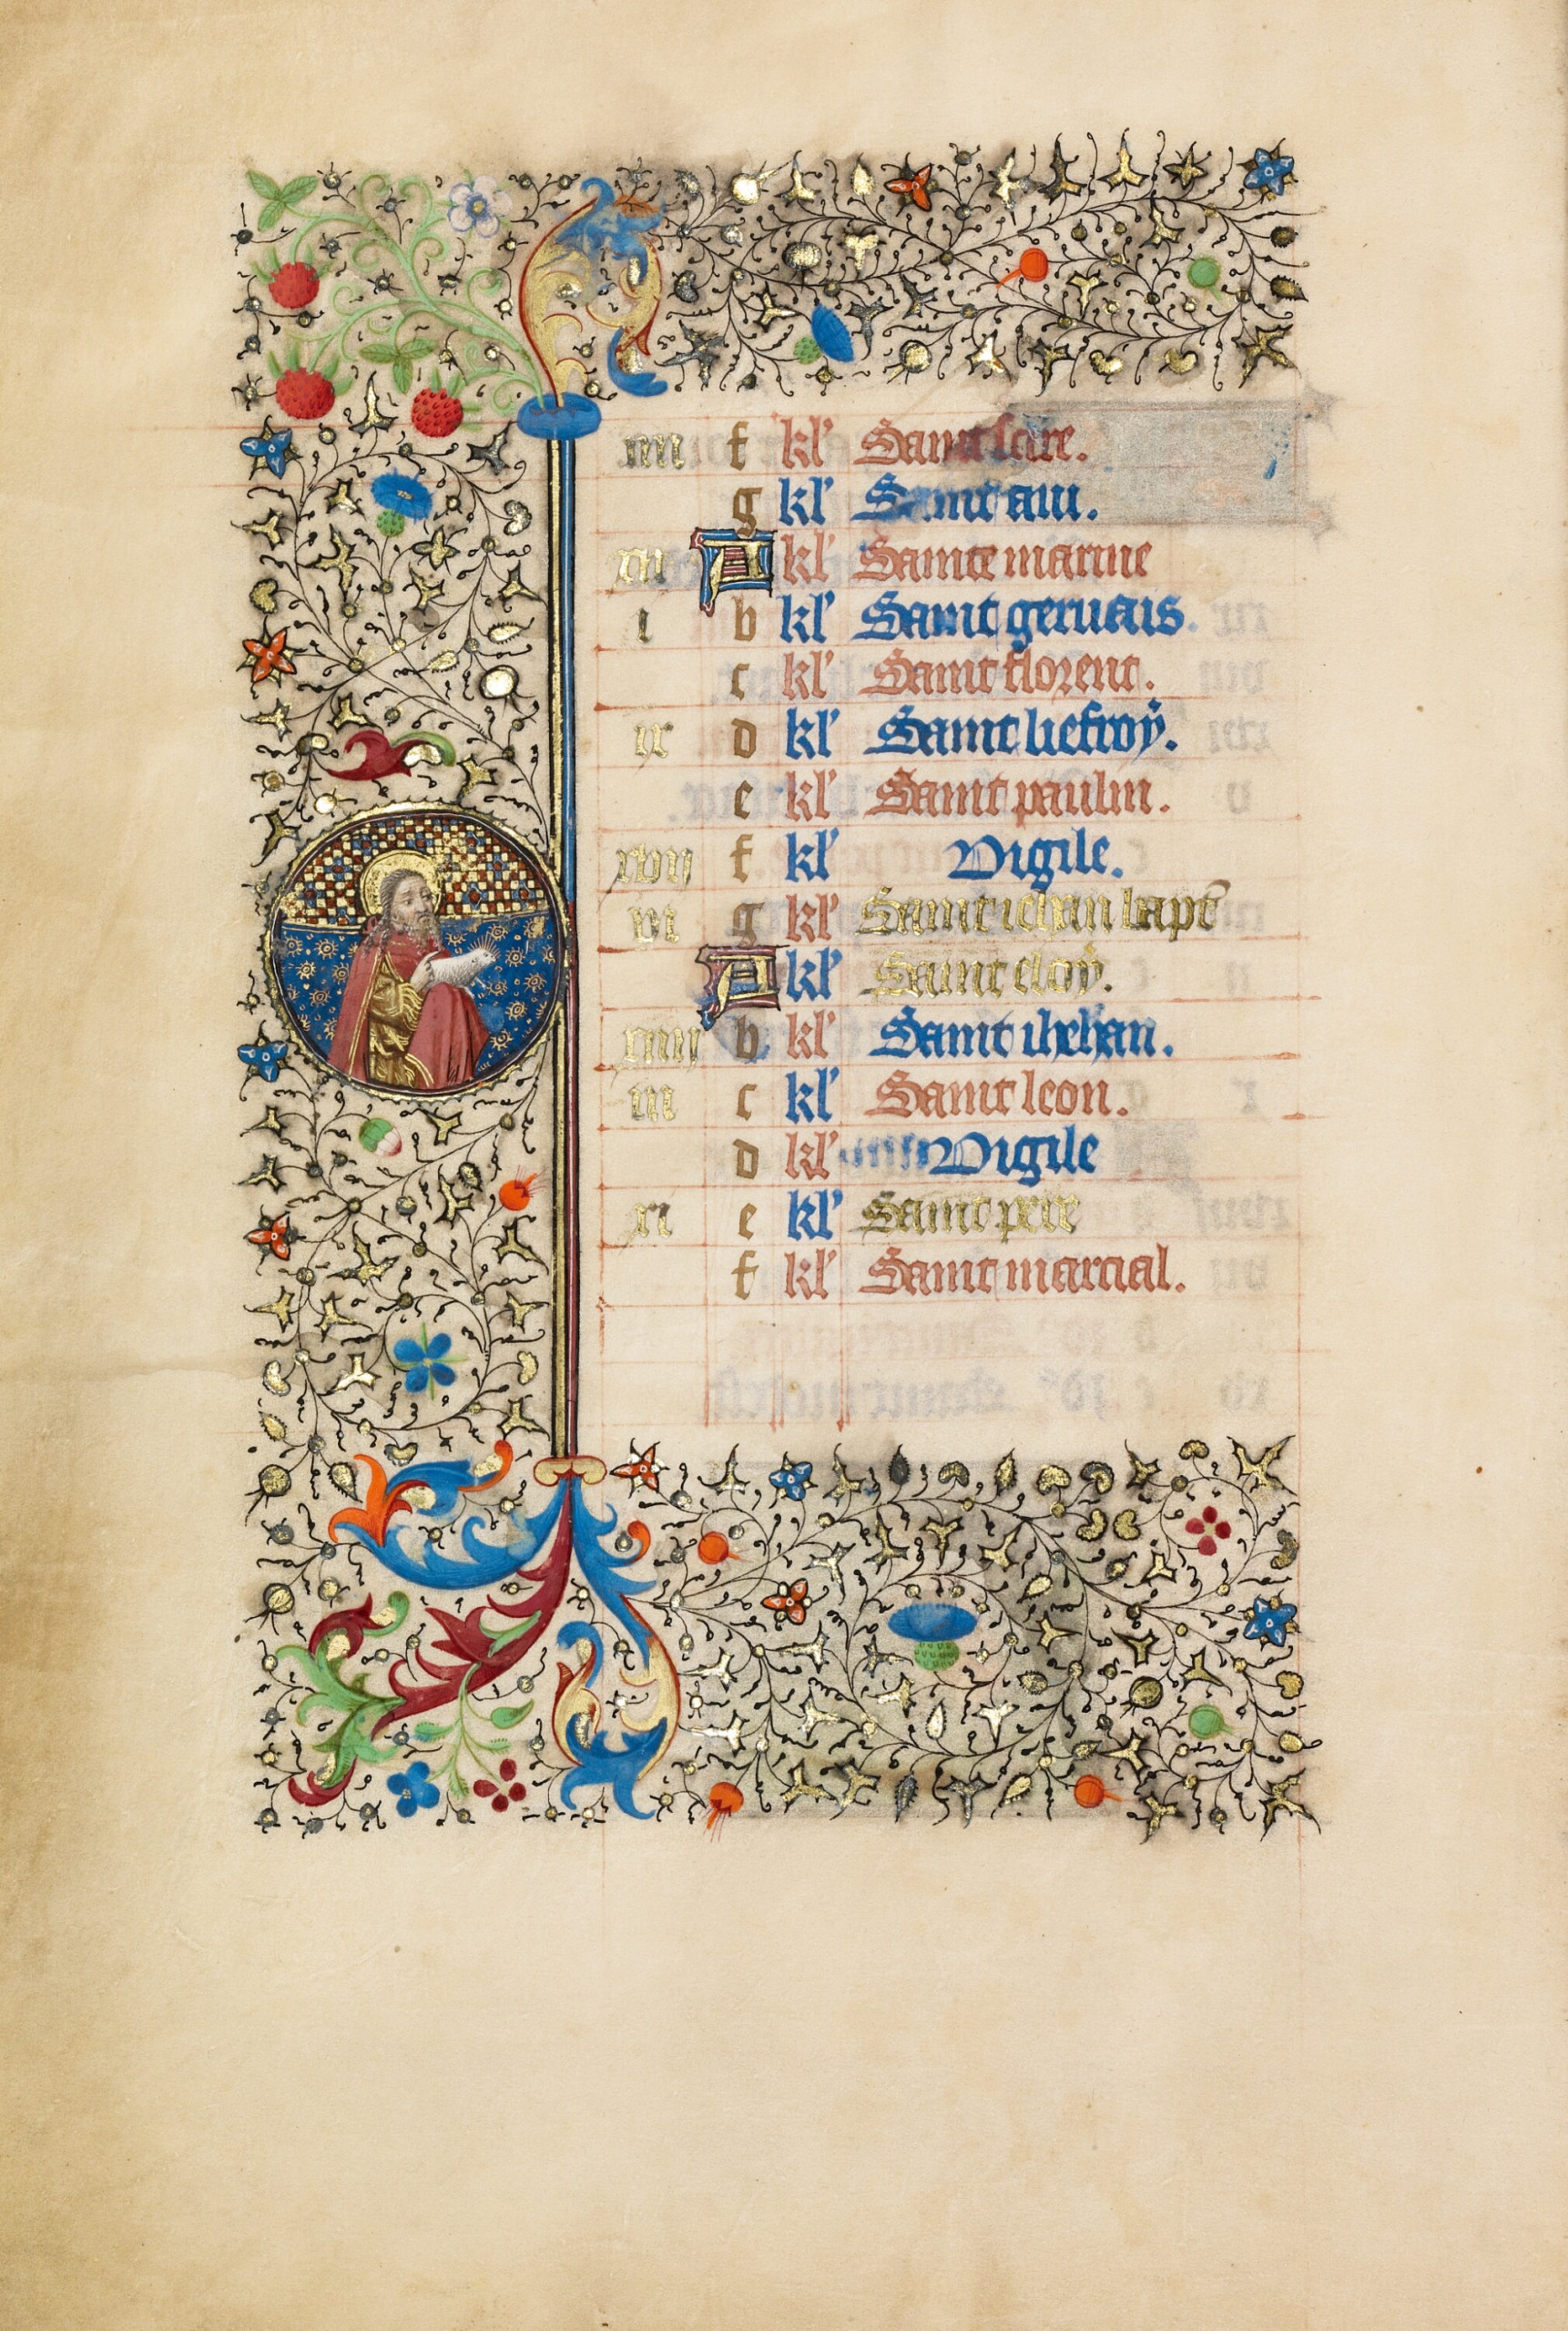 iiii f kl' Saint fare.
g kl' Saint aui.
xii A kl' Sainte marine
i b kl' Saint geruais.
c kl' Saint florent.
ix d kl' Saint liefroy.
e kl' Saint paulin.
xvii f kl' Vigile.
vi g kl' Saint iehan bapt
A kl' Saint eloy.
xiiii b kl' Saint ihehan.
iii c kl' Saint leon.
d kl' Vigile
xi e kl' Saint pere
f kl' Saint marcial.